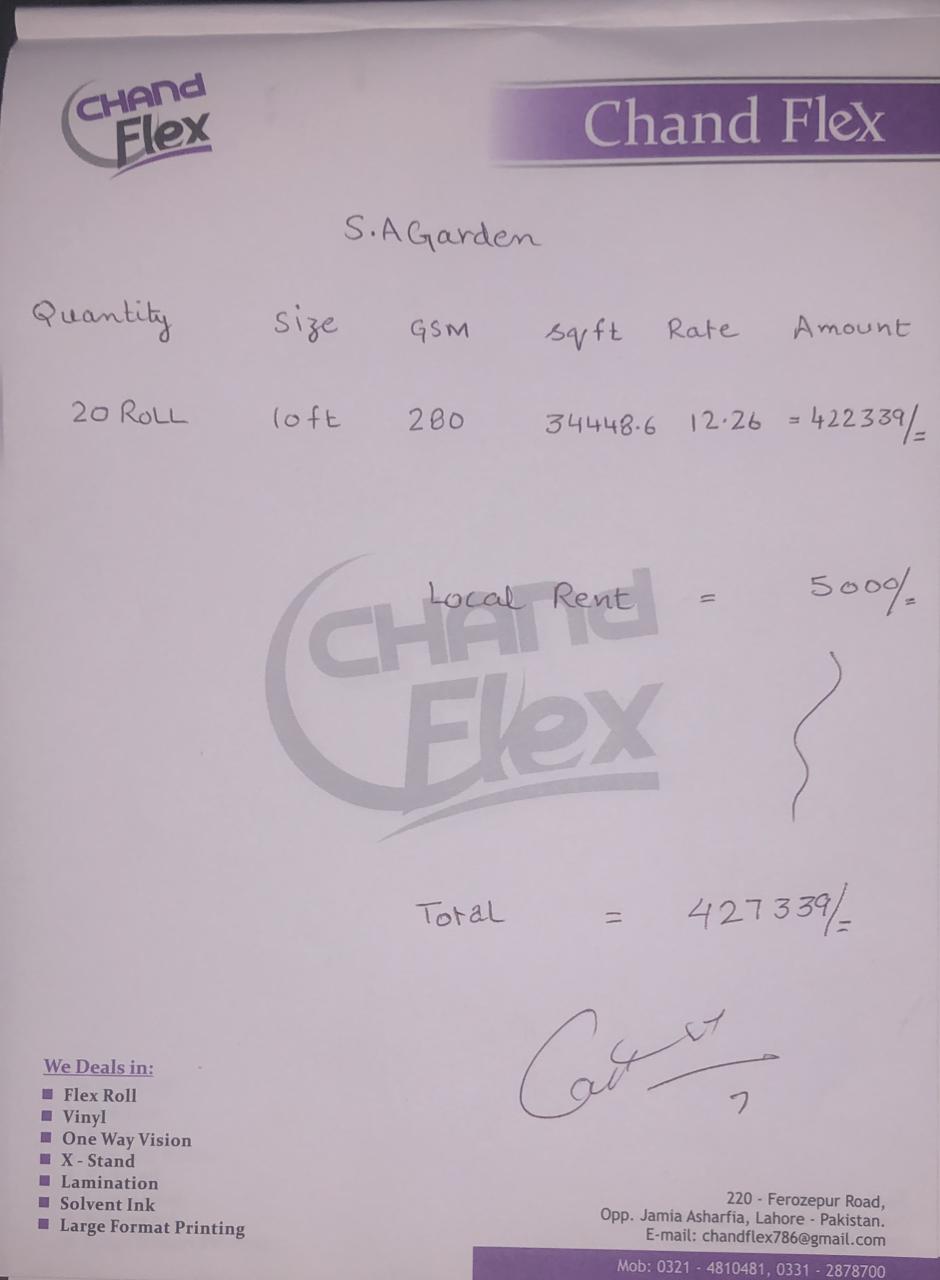 CHANd Flex
Chand Flex
S.A Garden
Quantity Size GSM sqft Rate Amount
20 RoLL 10ft 280 34448.6 12.26 = 422339/=
Local Rent = 5000/=
CHANd
Flex
Total = 427339/=
We Deals in:
Flex Roll
Vinyl
One Way Vision
X - Stand
Lamination
Solvent Ink
Large Format Printing
220 - Ferozepur Road,
Opp. Jamia Asharfia, Lahore - Pakistan.
E-mail: chandflex786@gmail.com
Mob: 0321 - 4810481, 0331 - 2878700